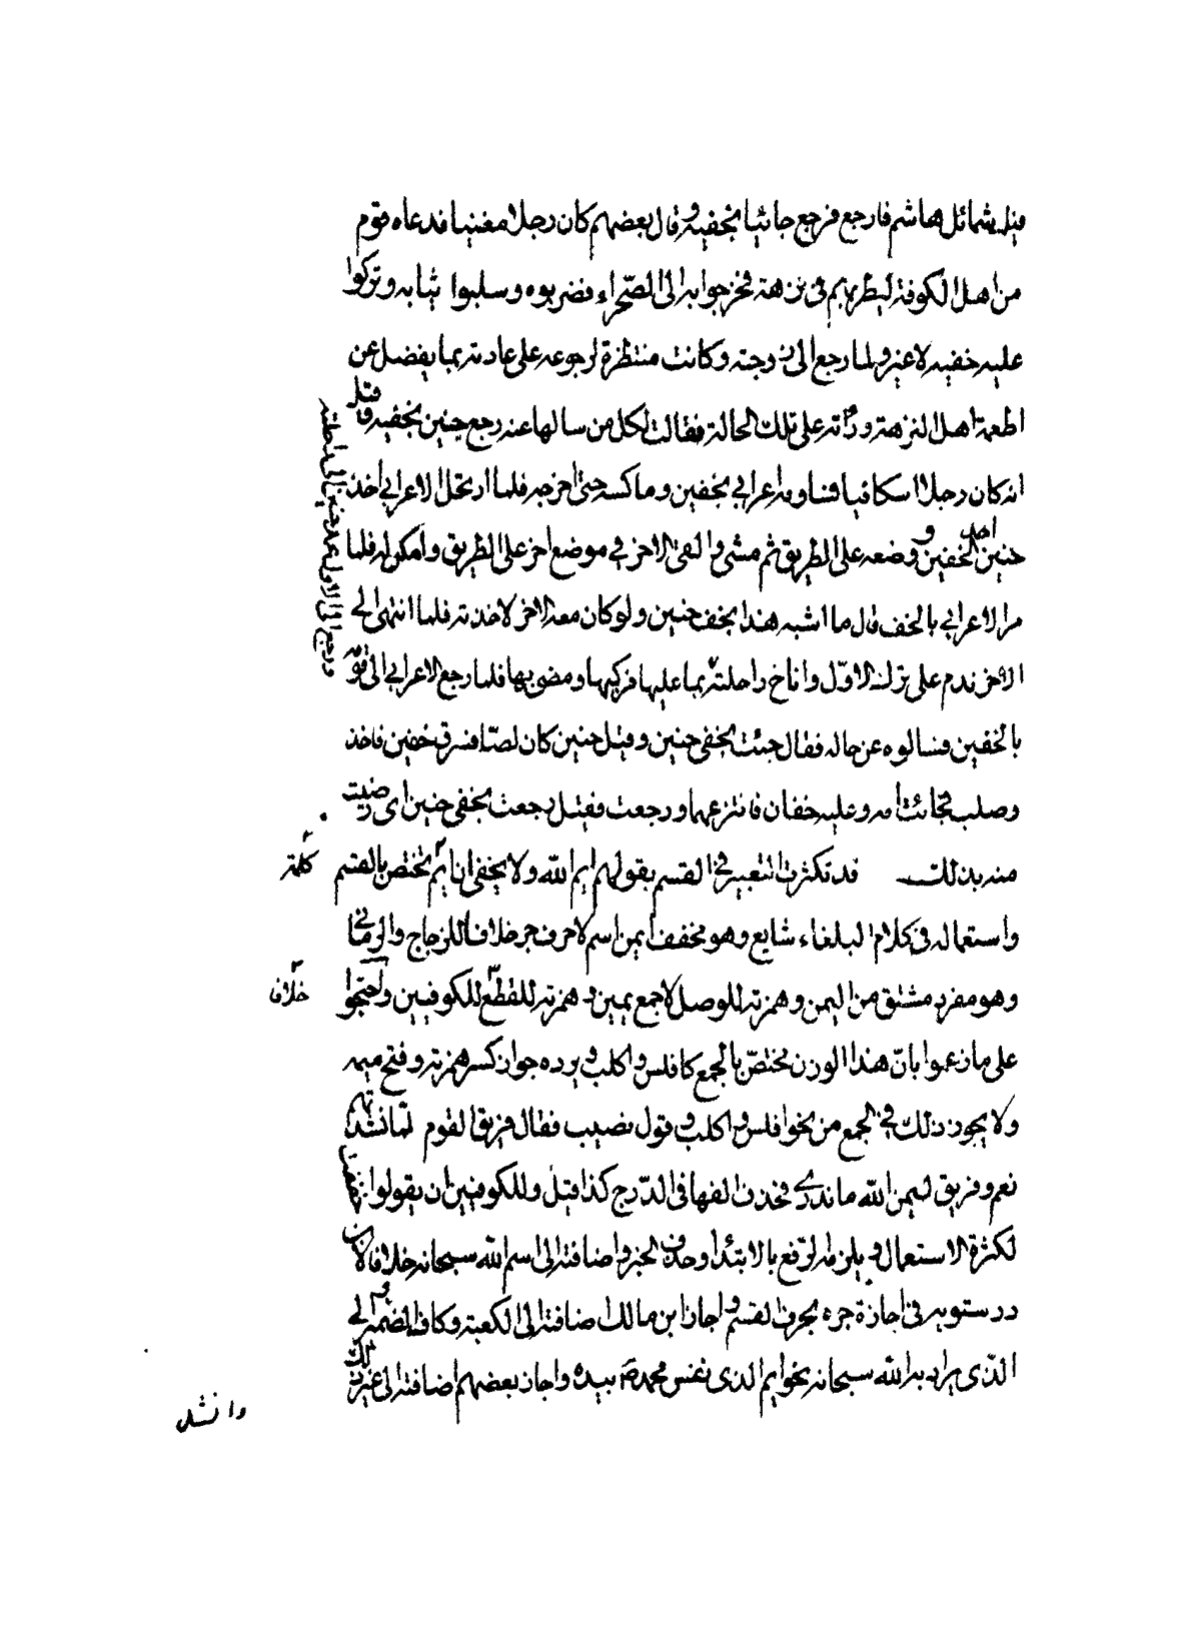 فيك شمائل هاشم فارجع فرجع خائبا بخفيه وقال بعضهم كان رجلا مغنيا فدعاه قوم
من اهل الكوفة ليطربهم في نزهة فخرجوا به الى الصحراء فضربوه وسلبوا ثيابه وتركوا
عليه خفيه لا غير ولما رجع الى زوجته وكانت منتظرة لرجوعه على عادته بما يفضل عن
اطعمة اهل النزهة ورأته على تلك الحالة فقالت لكل من سالها عنه رجع حنين بخفيه وقيل
انه كان رجلا اسكافيا فساومه اعرابي بخفين وماكسه حتى احرجه فلما ارتحل الاعرابي اخذ
حنين احد الخفين و وضعه على الطريق ثم مشى والقى الاخر في موضع اخر على الطريق وامكن له فلما
مر الاعرابي بالخف قال ما اشبه هذا بخف حنين ولو كان معه الاخر لاخذته فلما انتهى الى
الاخر ندم على تركه الاول واناخ راحلته بما عليها فركبها ومضى بها فلما رجع الاعرابي الى قومه
ورجع الى الاول عمد حنين الى راحلته
بالخفين فسالوه عن حاله فقال جئت بخفي حنين وقيل حنين كان لصا فسرق خفين فاخذ
وصلب فجائت امه وعليه خفان فانتزعهما ورجعت فقيل رجعت بخفي حنين اى رضيت
منه بذلك قد تكثرت التعبير في القسم بقولهم ايم الله ولا يخفى ان ايم تختص بالقسم
كلمة
واستعماله في كلام البلغاء شايع وهو مخفف ايمن اسم لا حرف جر خلافا للزجاج والرماني
وهو مفرد مشتق من اليمن وهمزته للوصل لا جمع يمين و همزته للقطع للكوفيين واحتجوا
خلافا
على ما زعموا بان هذا الوزن مختص بالجمع كافلس واكلب ويرده جواز كسر همزته وفتح ميمه
ولا يجوز ذلك في الجمع من نحو افلس واكلب وقول نصيب فقال فريق القوم لما نشدتهم
نعم وفريق ليمن الله ما ندري فحذف الفها في الدرج كذا قيل وللكوفيين ان يقولوا
لكثرة الاستعمال ويلزمه الرفع بالابتدا وحذف الخبر واضافته الى اسم الله سبحانه خلافا لابن
درستويه في اجازة جره بحرف القسم و اجاز ابن مالك اضافته الى الكعبة وكاف الضمير و الى
الذى يراد به الله سبحانه نحو ايم الذى نفس محمد ص بيده واجاز بعضهم اضافته الى غير ذلك
وانشد